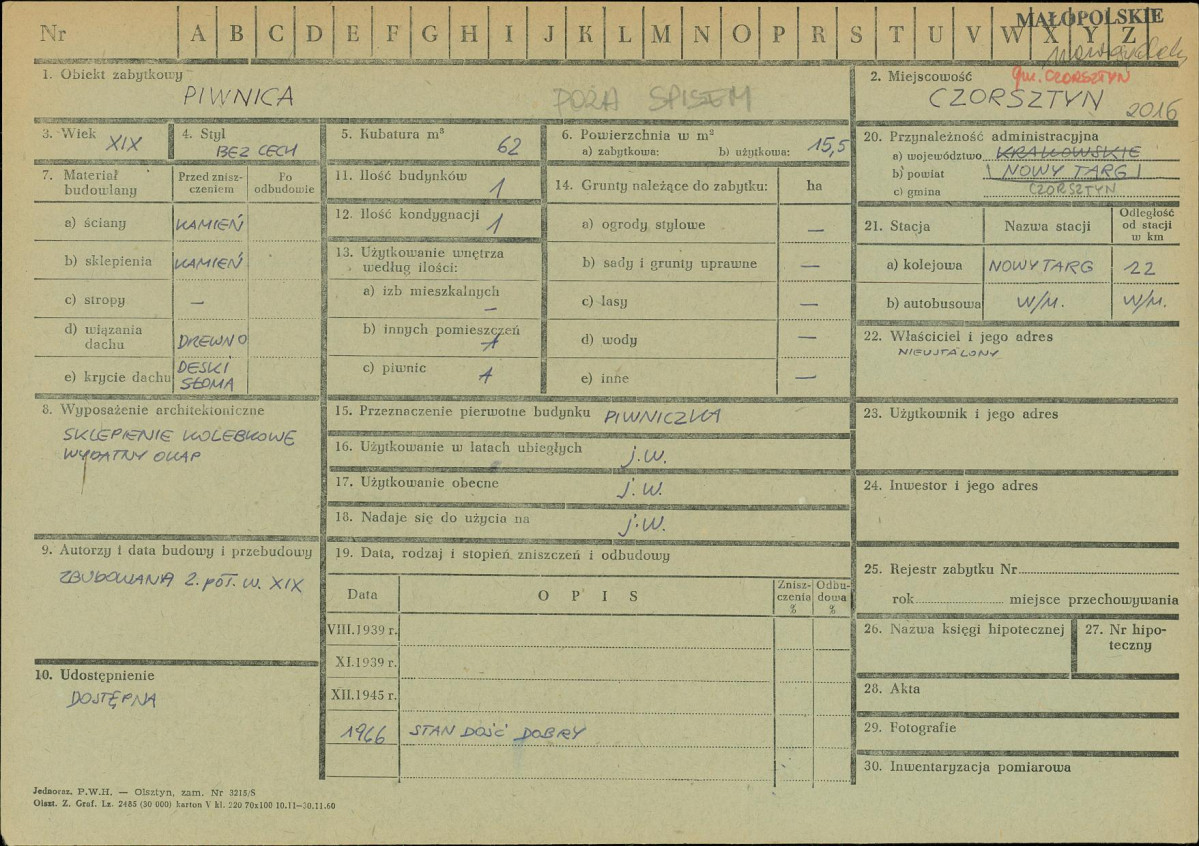 Nr A B C D E F G H I J K L M N O P R S T U V W X Y Z
MAŁOPOLSKIE
gm. CZORSZTYN
1. Obiekt zabytkowy
PIWNICA
POZA SPISEM
2. Miejscowość
CZORSZTYN
2016
3. Wiek
XIX
4. Styl
BEZ CECH
5. Kubatura m³
62
6. Powierzchnia w m²
a) zabytkowa: b) użytkowa:
15,5
7. Materiał budowlany
Przed zniszczeniem
Po odbudowie
a) ściany KAMIEŃ
b) sklepienia KAMIEŃ
c) stropy —
d) wiązania dachu DREWNO
e) krycie dachu DESKI
SŁOMA
8. Wyposażenie architektoniczne
SKLEPIENIE KOLEBKOWE
WYDATNY OKAP
9. Autorzy i data budowy i przebudowy
ZBUDOWANA 2. POŁ. W. XIX
10. Udostępnienie
DOSTĘPNA
11. Ilość budynków
1
12. Ilość kondygnacji
1
13. Użytkowanie wnętrza
według ilości:
a) izb mieszkalnych
—
b) innych pomieszczeń
1
c) piwnic
1
14. Grunty należące do zabytku: ha
a) ogrody stylowe —
b) sady i grunty uprawne —
c) lasy —
d) wody —
e) inne —
15. Przeznaczenie pierwotne budynku PIWNICZKA
16. Użytkowanie w latach ubiegłych j.w.
17. Użytkowanie obecne j.w.
18. Nadaje się do użycia na j.w.
19. Data, rodzaj i stopień zniszczeń i odbudowy
Data OPIS Zniszczenia % Odbudowa %
VIII.1939 r.
XI.1939 r.
XII.1945 r.
1966 STAN DOŚĆ DOBRY
20. Przynależność administracyjna
a) województwo KRAKOWSKIE
b) powiat NOWY TARG
c) gmina CZORSZTYN
21. Stacja Nazwa stacji Odległość od stacji w km
a) kolejowa NOWY TARG 22
b) autobusowa W/M. W/M.
22. Właściciel i jego adres
NIEUSTALONY
23. Użytkownik i jego adres
24. Inwestor i jego adres
25. Rejestr zabytku Nr
rok miejsce przechowywania
26. Nazwa księgi hipotecznej
27. Nr hipoteczny
28. Akta
29. Fotografie
30. Inwentaryzacja pomiarowa
Jednoraz. P.W.H. — Olsztyn, zam. Nr 3215/S
Olszt. Z. Graf. Lz. 2485 (30 000) karton V kl. 220 70x100 10.11—30.11.60